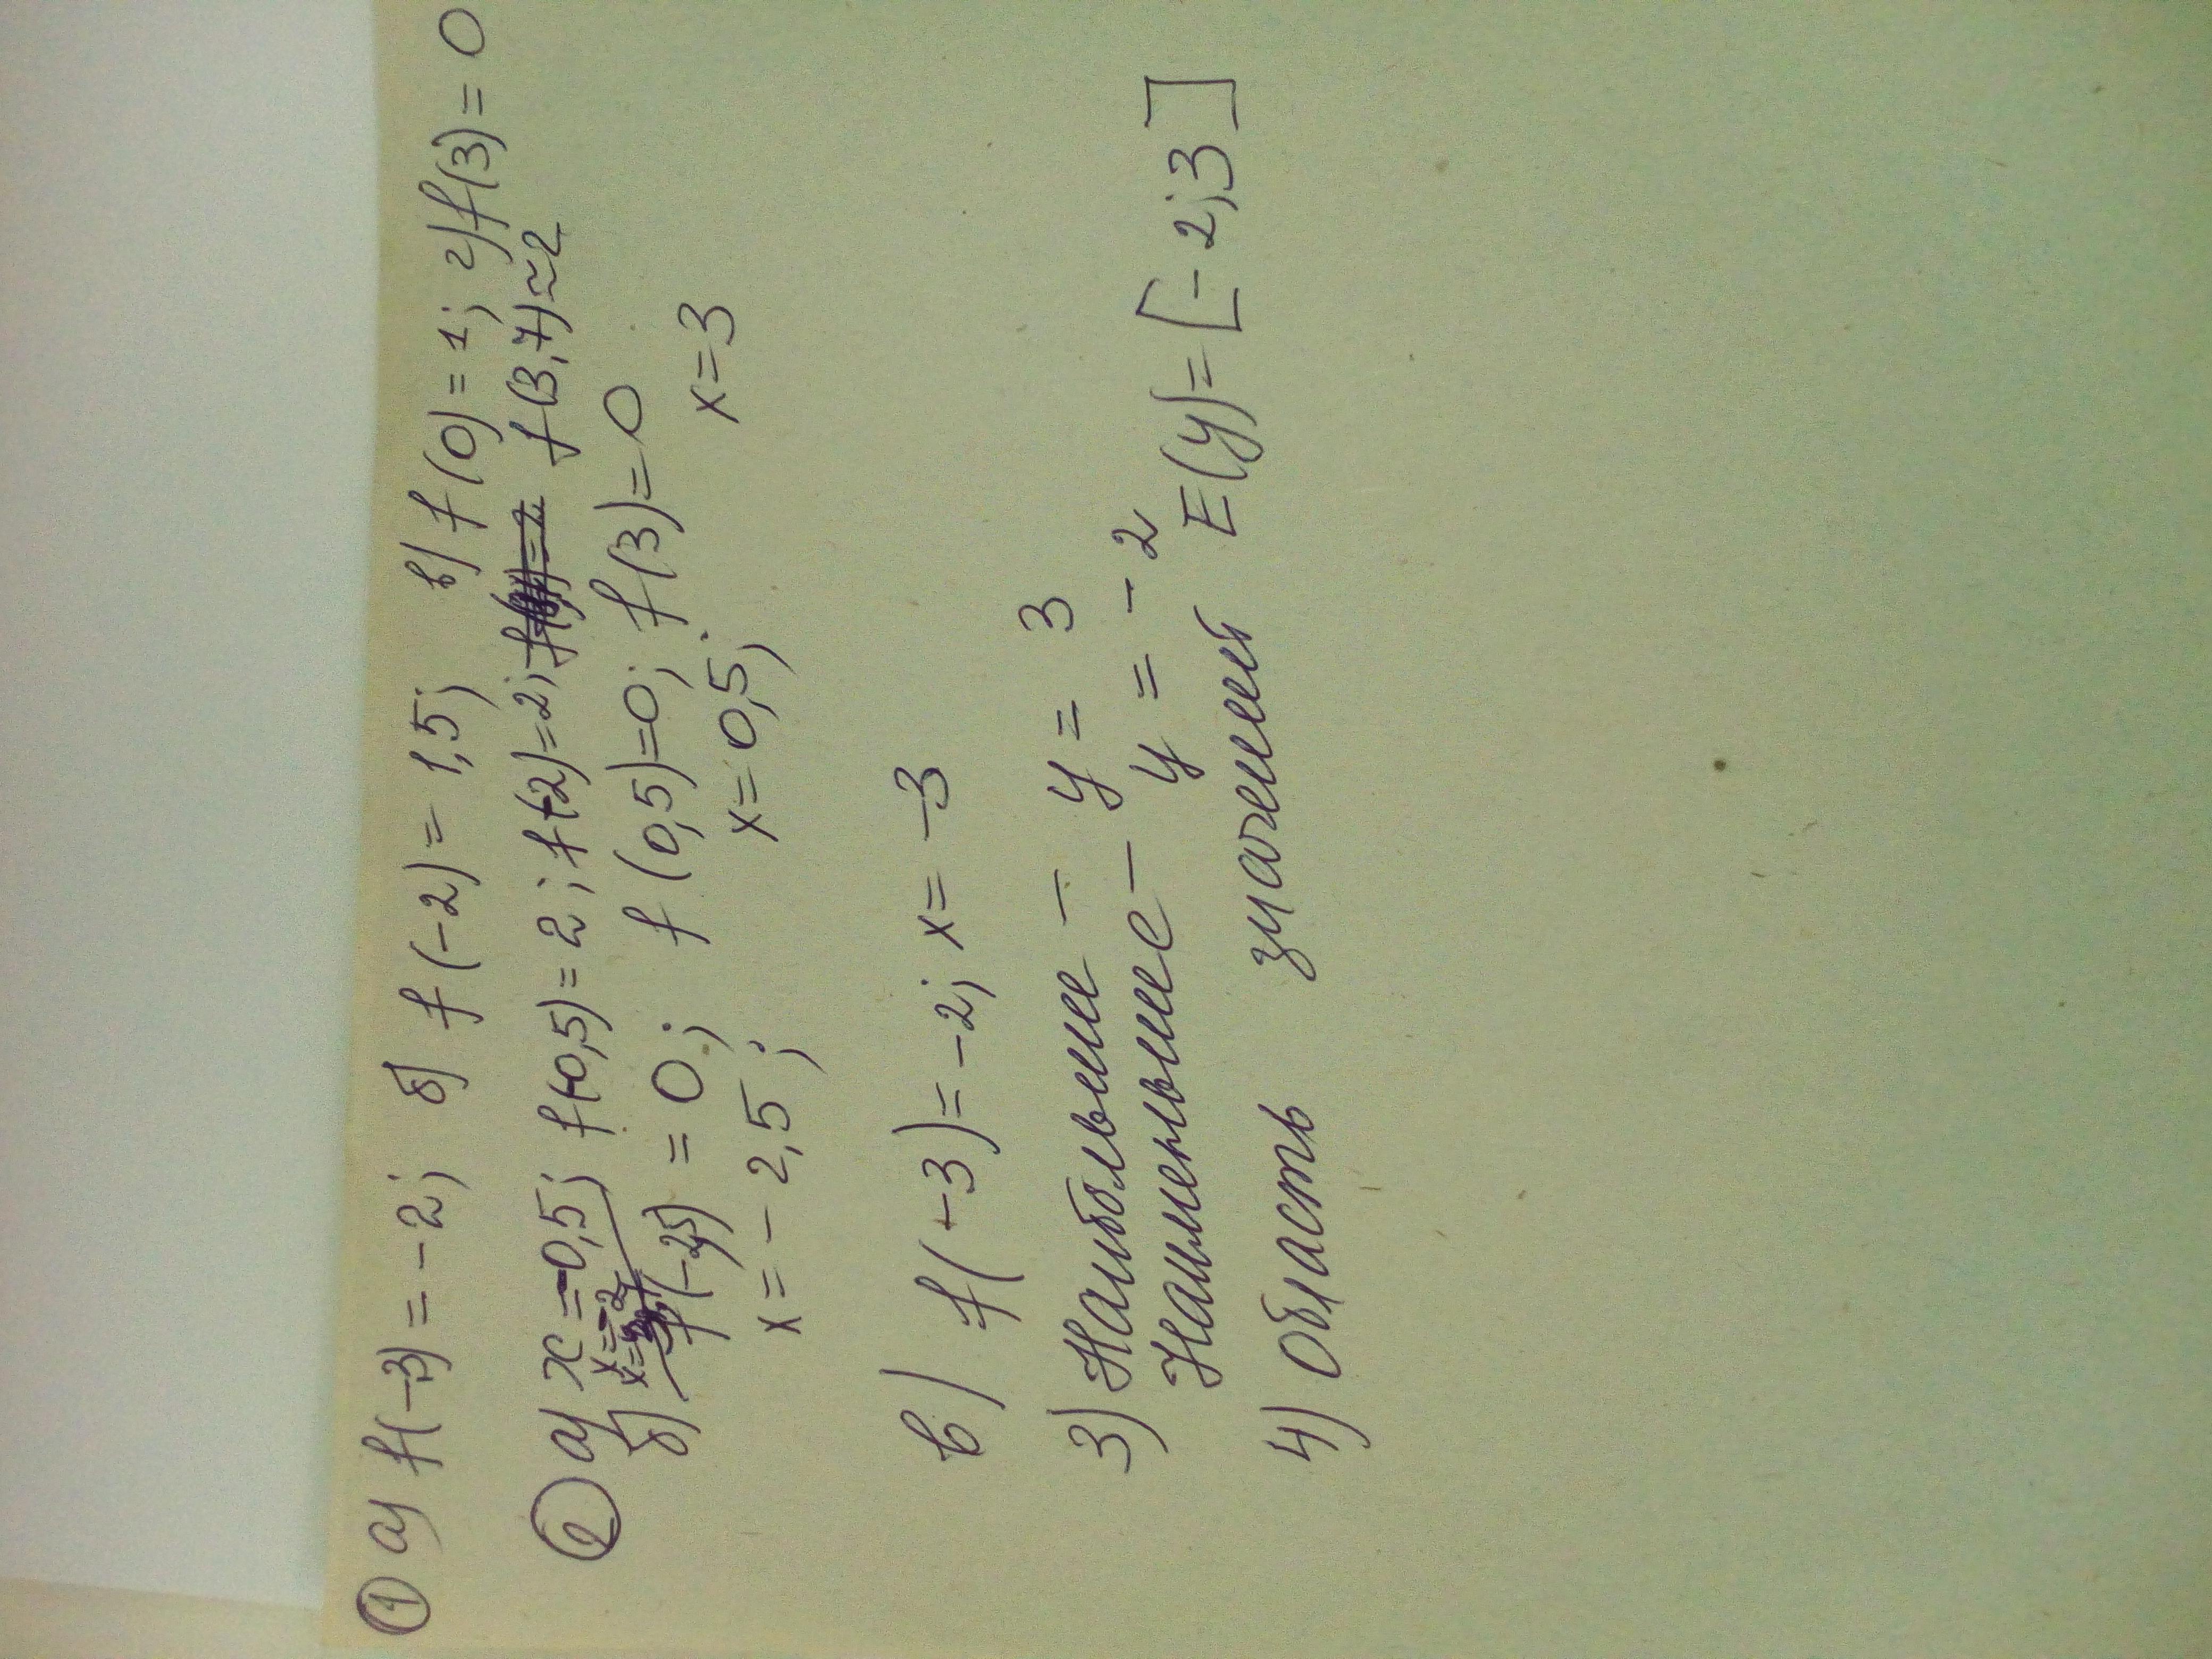 ① а) f(-3) = -2; б) f(-2) = 1,5; в) f(0) = 1; г) f(3) = 0
② а) x = -0,5; f(-0,5) = 2; f(-2) = 2; f(3,7) ≈ 2
x = -2
б) f(-2,5) = 0; f(0,5) = 0; f(3) = 0
x = -2,5; x = 0,5; x = 3
в) f(-3) = -2; x = -3
3) Наибольшее - y = 3
Наименьшее - y = -2
4) Область значений E(y) = [-2; 3]